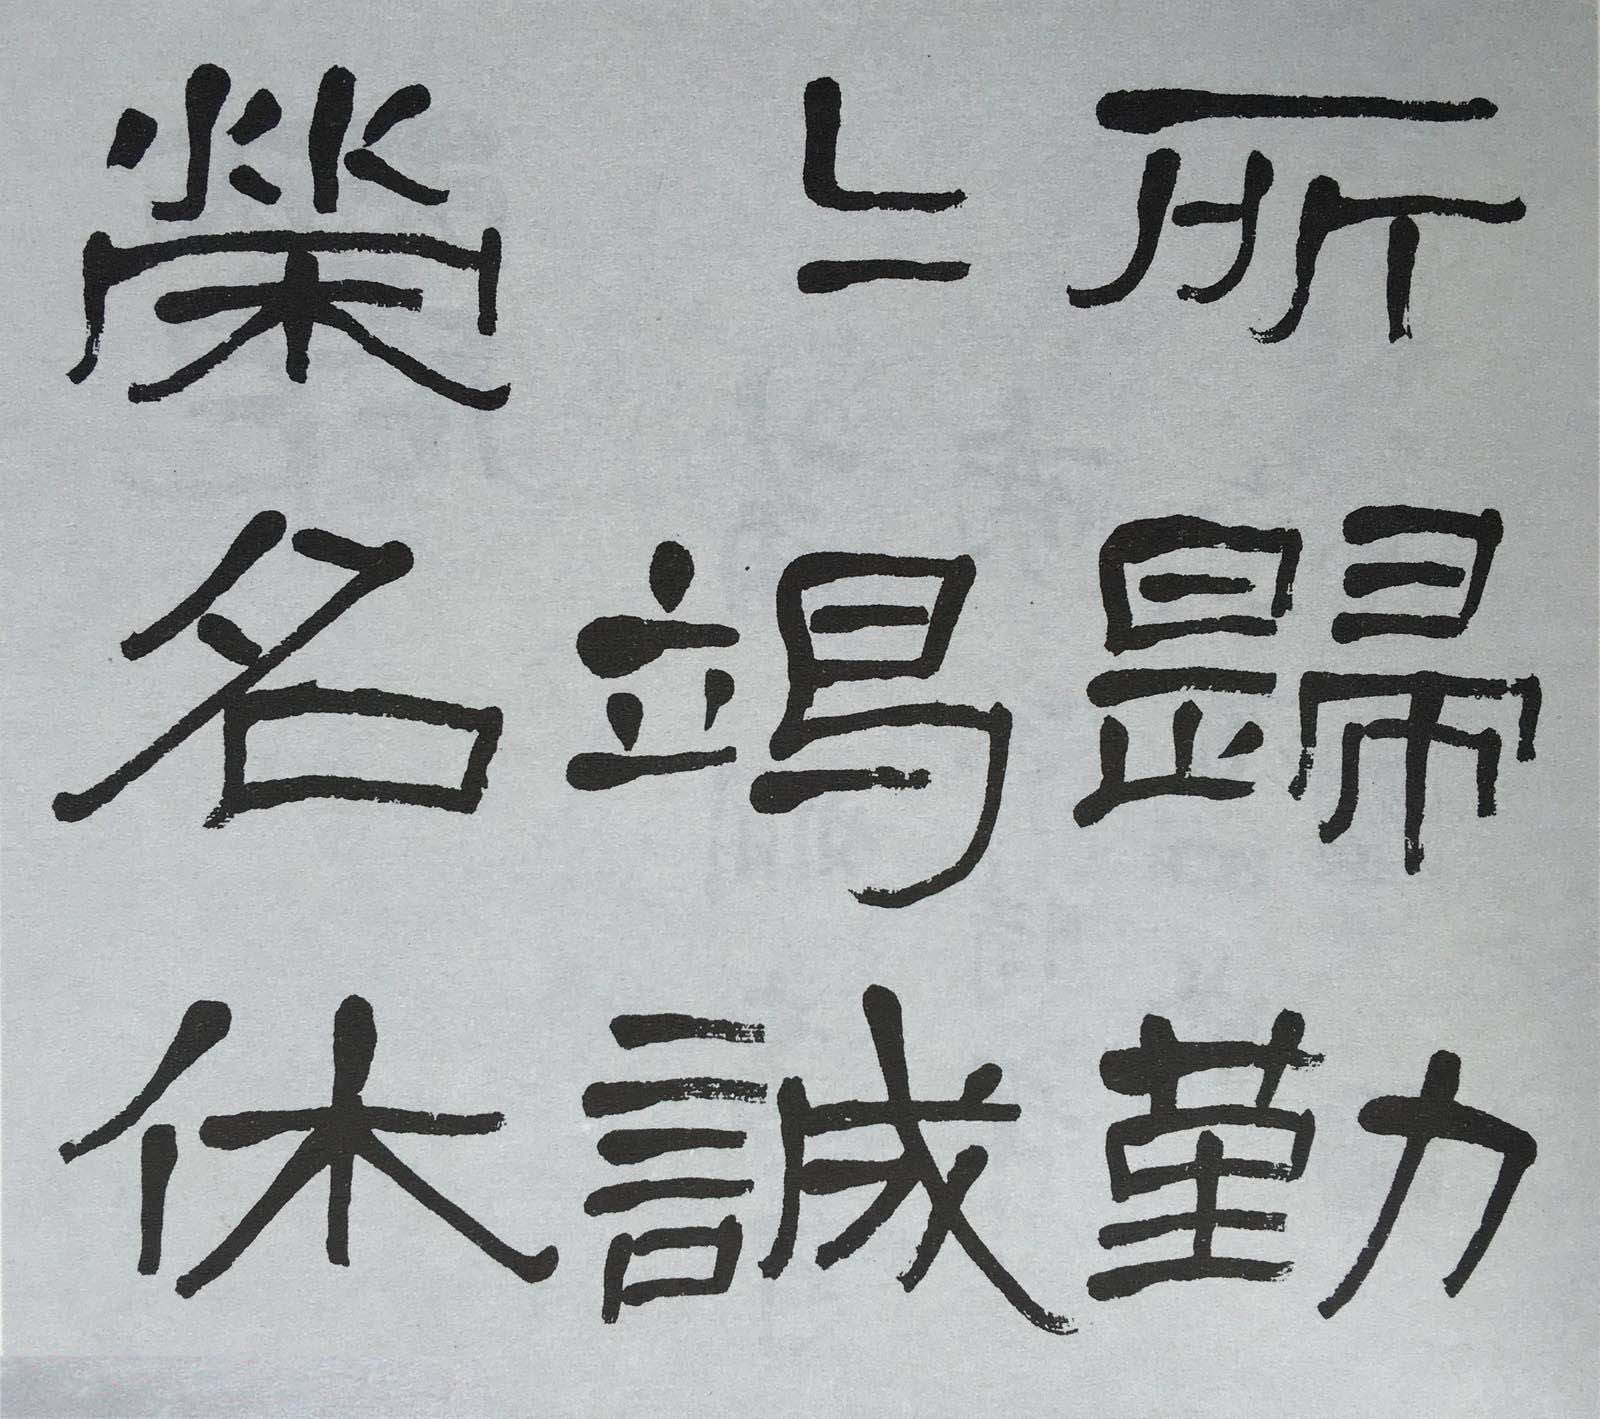 所歸勤
上竭誠
榮名休